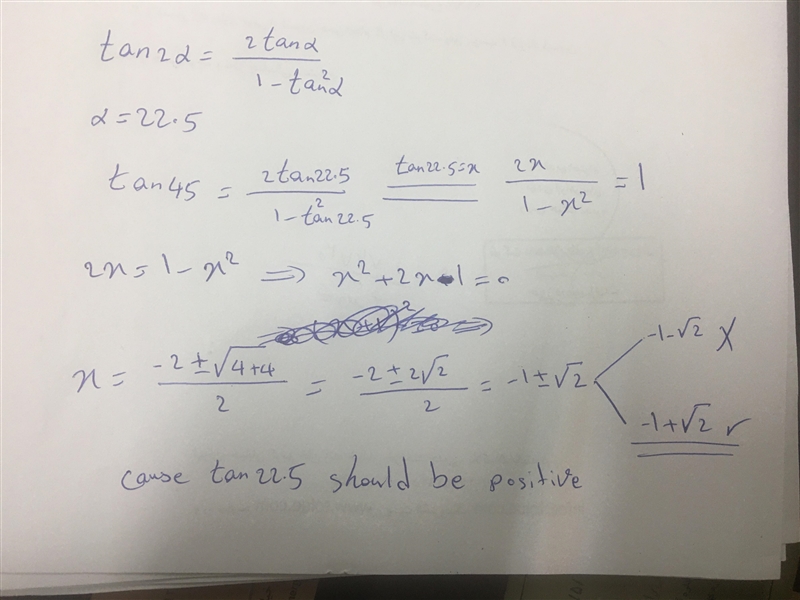 tan2α = 2tanα / 1 - tan²α
α = 22.5
tan45 = 2tan22.5 / 1 - tan²22.5 tan22.5=x 2x / 1 - x² = 1
2x = 1 - x² ⇒ x² + 2x - 1 = 0
x = -2 ± √4+4 / 2 = -2 ± 2√2 / 2 = -1 ± √2
-1-√2 X
-1+√2 ✓
cause tan22.5 should be positive